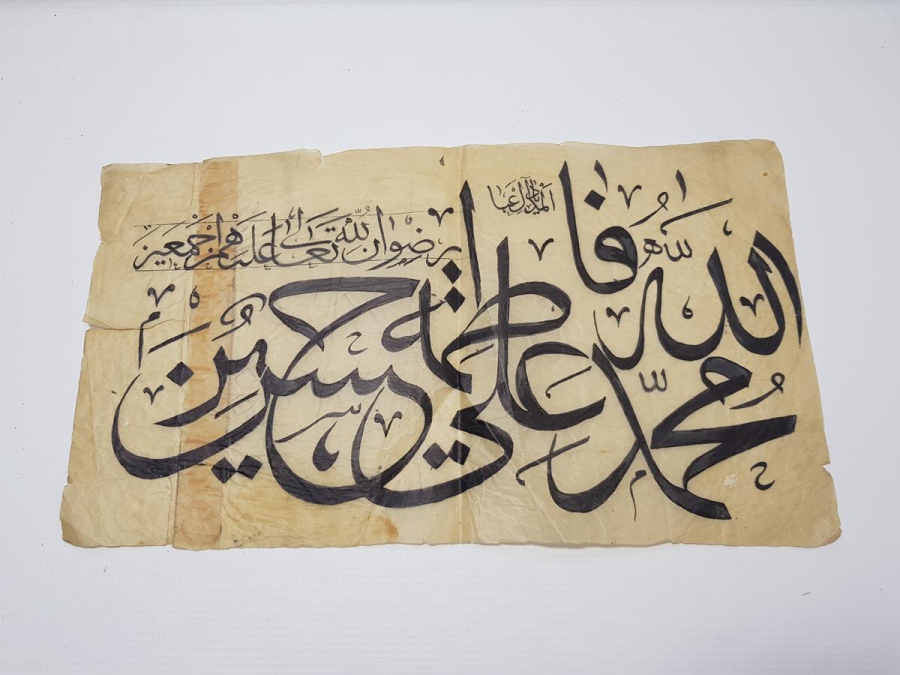 المدد يا آل عبا
رضوان الله تعالى عليهم اجمعين
الله
فاطمه
محمد علي حسن حسين